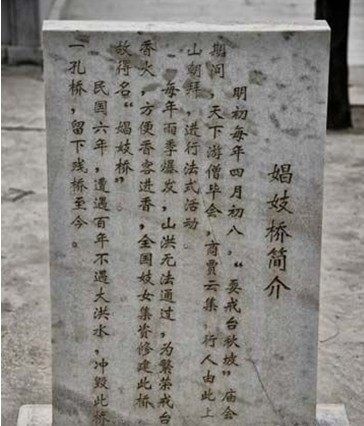 娼妓桥简介
明初每年四月初八，“耍戒台秋坡”庙会
期间，天下游僧毕会，商贾云集，行人由此上
山朝拜，进行法式活动。
每年雨季爆发，山洪无法通过，为繁荣戒台
香火，方便香客进香，全国妓女集资修建此桥，
故得名“娼妓桥”
民国六年，遭遇百年不遇大洪水，冲毁此桥
一孔桥，留下残桥至今。